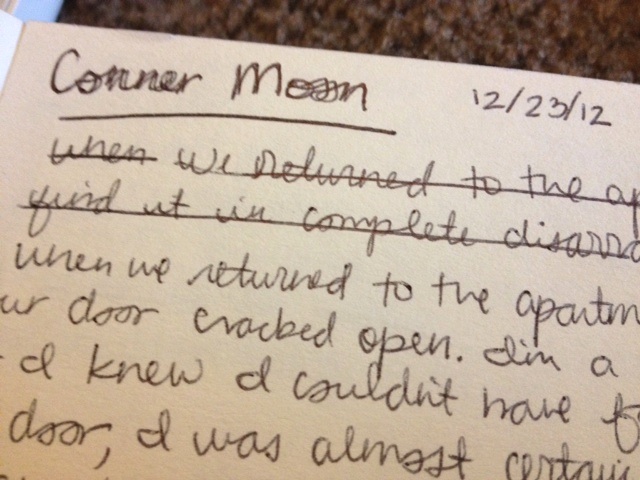 Conner Moon 12/23/12
when we returned to the ap
find it in complete disarra
when we returned to the apartm
ur door cracked open. I'm a
I knew I couldn't have fo
door, I was almost certain